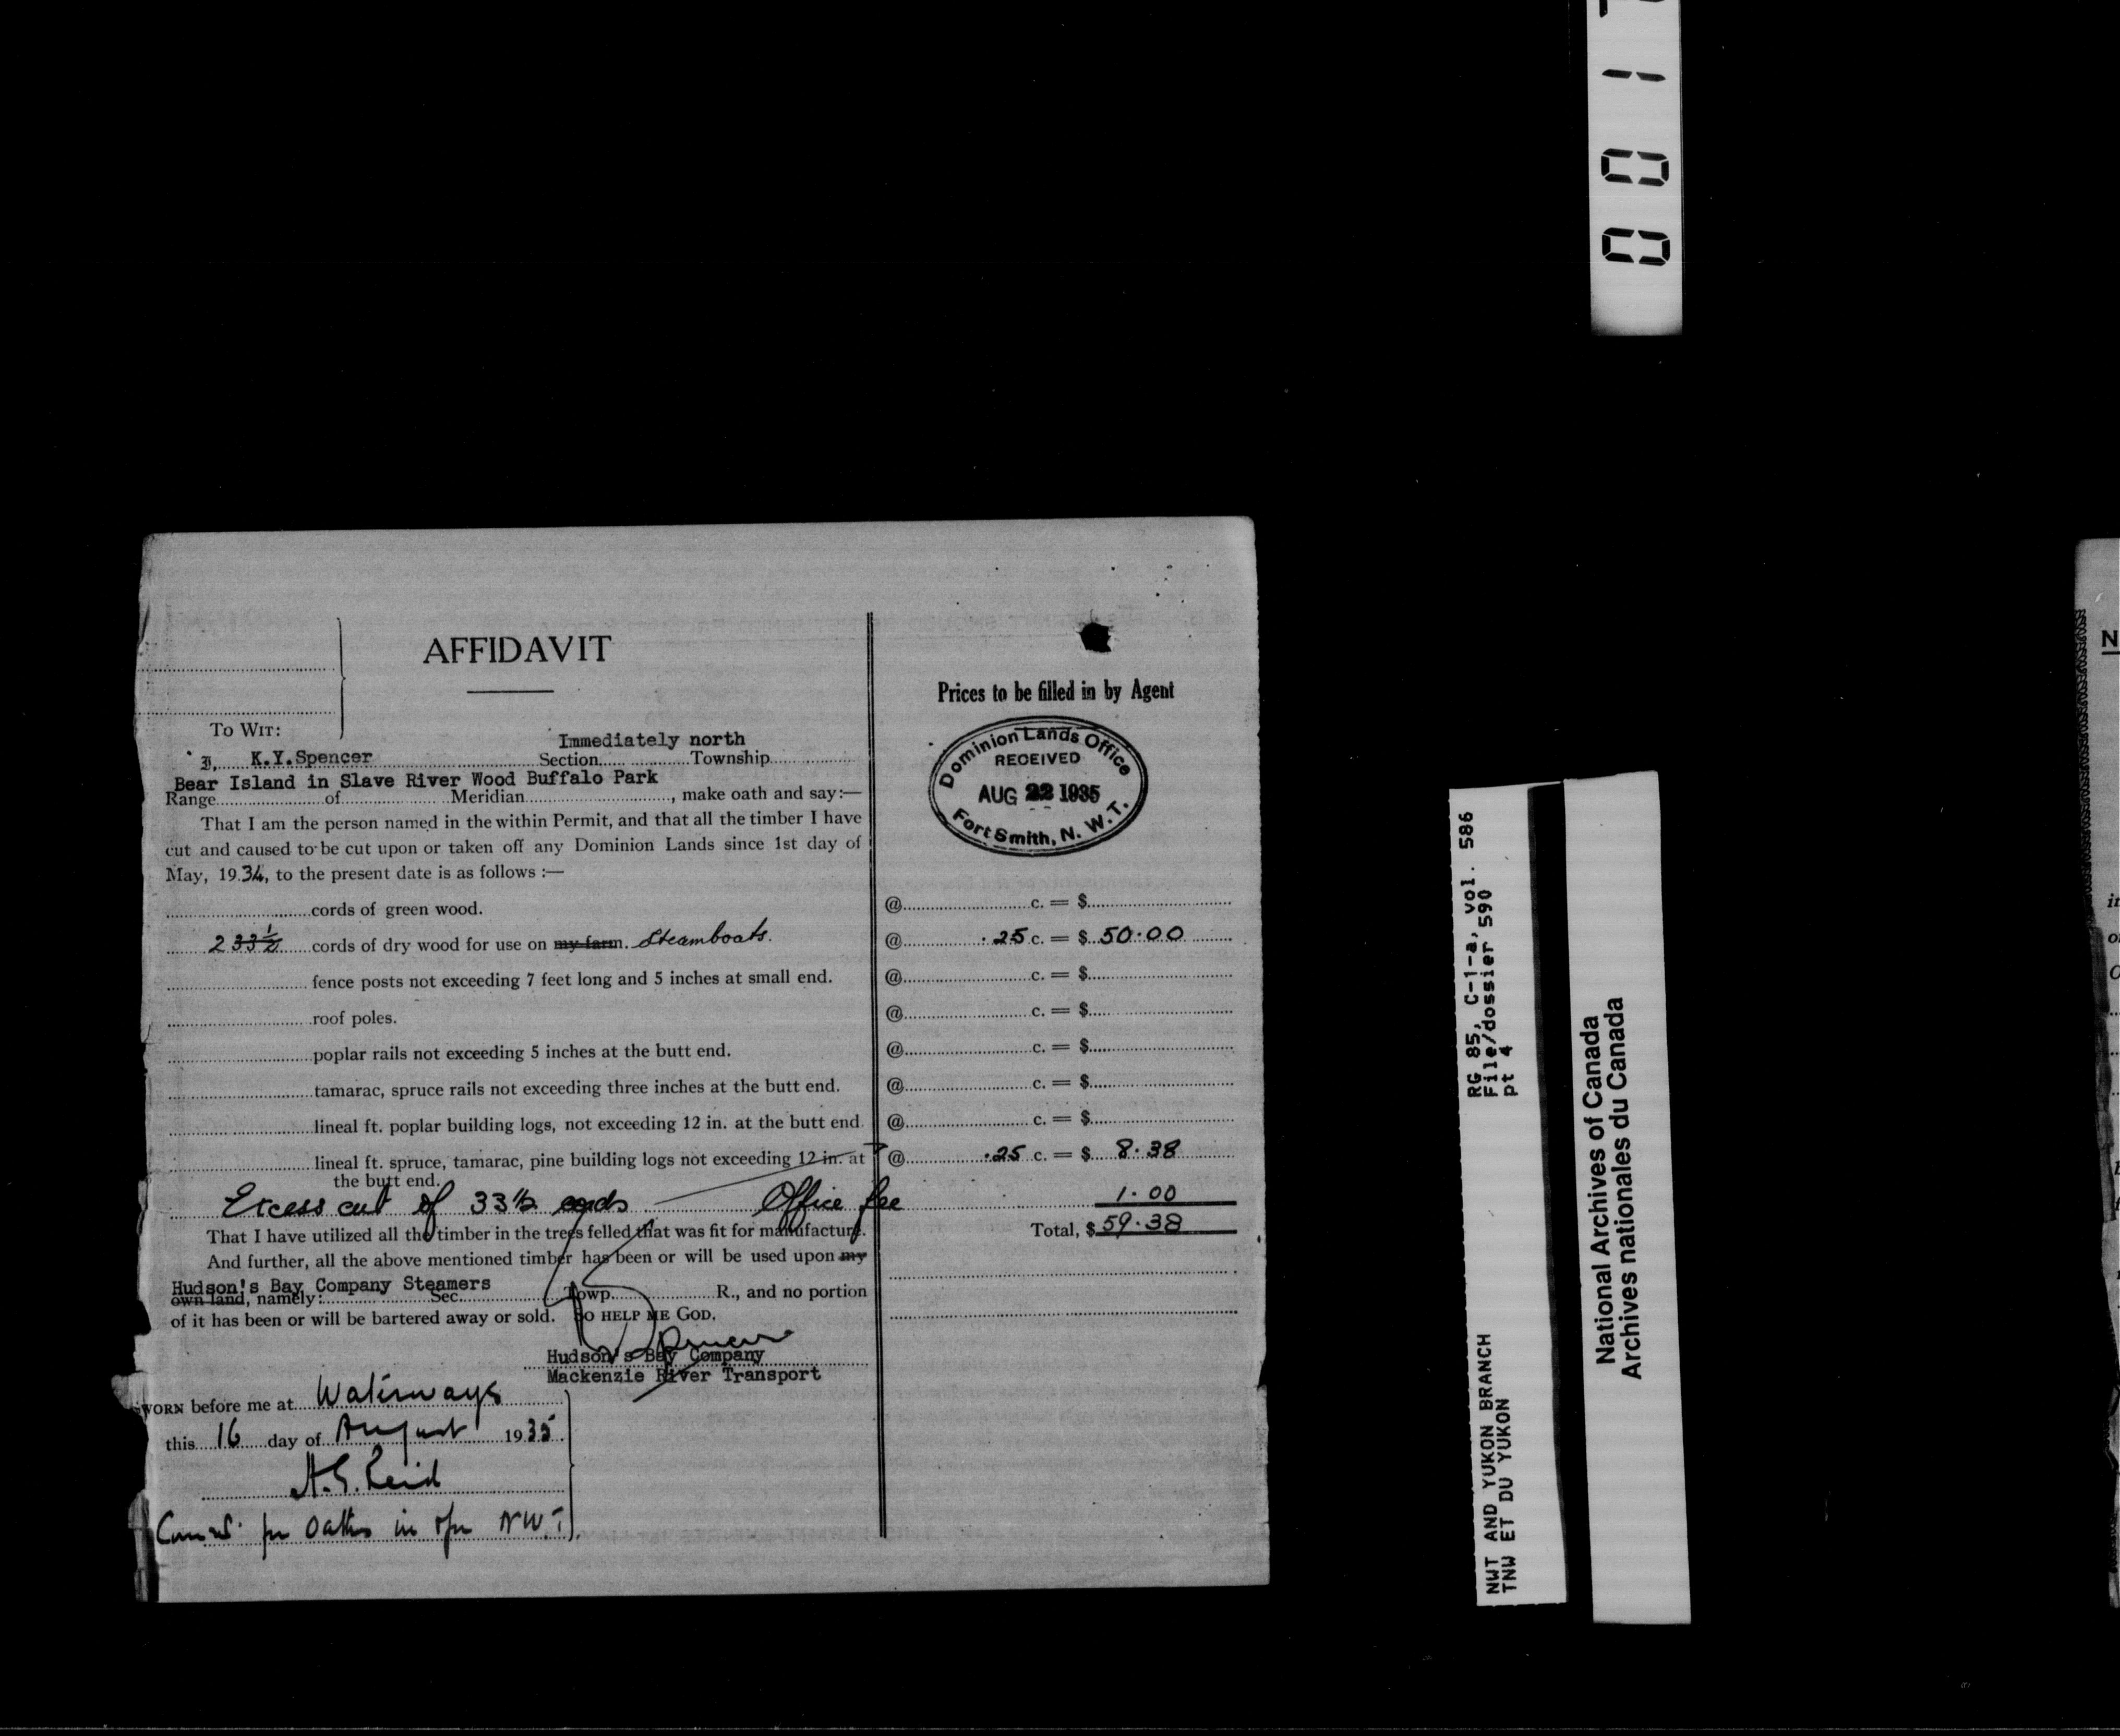 AFFIDAVIT
To Wit:
Immediately north
I, K.Y.Spencer Section Township
Bear Island in Slave River Wood Buffalo Park
Range of Meridian, make oath and say:—
That I am the person named in the within Permit, and that all the timber I have
cut and caused to be cut upon or taken off any Dominion Lands since 1st day of
May, 1934, to the present date is as follows :—
cords of green wood.
233½ cords of dry wood for use on my farm. Steamboats.
fence posts not exceeding 7 feet long and 5 inches at small end.
roof poles.
poplar rails not exceeding 5 inches at the butt end.
tamarac, spruce rails not exceeding three inches at the butt end.
lineal ft. poplar building logs, not exceeding 12 in. at the butt end.
lineal ft. spruce, tamarac, pine building logs not exceeding 12 in. at
the butt end.
Excess cut of 33½ cords Office fee
That I have utilized all the timber in the trees felled that was fit for manufacture.
And further, all the above mentioned timber has been or will be used upon my
Hudson's Bay Company Steamers
own land, namely: Sec. Towp. R., and no portion
of it has been or will be bartered away or sold. So help me God.
Spencer
Hudson's Bay Company
Mackenzie River Transport
Sworn before me at Waterways
this 16 day of August 1935.
A.G. Reid
Prices to be filled in by Agent
Dominion Lands Office
RECEIVED
AUG 22 1935
Fort Smith, N. W. T.
@ c. = $
@ .25 c. = $ 50.00
@ c. = $
@ c. = $
@ c. = $
@ c. = $
@ c. = $
@ .25 c. = $ 8.38
1.00
Total, $ 59.38
RG 85, C-1-a, vol. 586
File/dossier 590
pt 4
NWT AND YUKON BRANCH
TNW ET DU YUKON
National Archives of Canada
Archives nationales du Canada
001
N